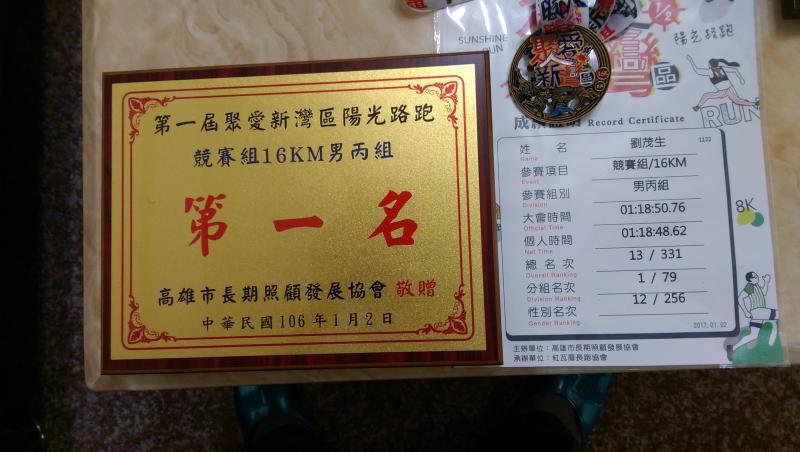 第一屆聚愛新灣區陽光路跑
競賽組16KM男丙組
第一名
高雄市長期照顧發展協會 敬贈
中華民國106年1月2日
SUNSHINE
RUN
聚愛
新灣區
灣
區
陽光路跑
RUN
8K
成績證明 Record Certificate
姓 名 劉茂生 1122
Name
參賽項目 競賽組/16KM
Event
參賽組別 男丙組
Division
大會時間 01:18:50.76
Official Time
個人時間 01:18:48.62
Net Time
總名次 13 / 331
Overall Ranking
分組名次 1 / 79
Division Ranking
性別名次 12 / 256
Gender Ranking
2017. 01. 02
主辦單位：高雄市長期照顧發展協會
承辦單位：紅瓦厝長跑協會